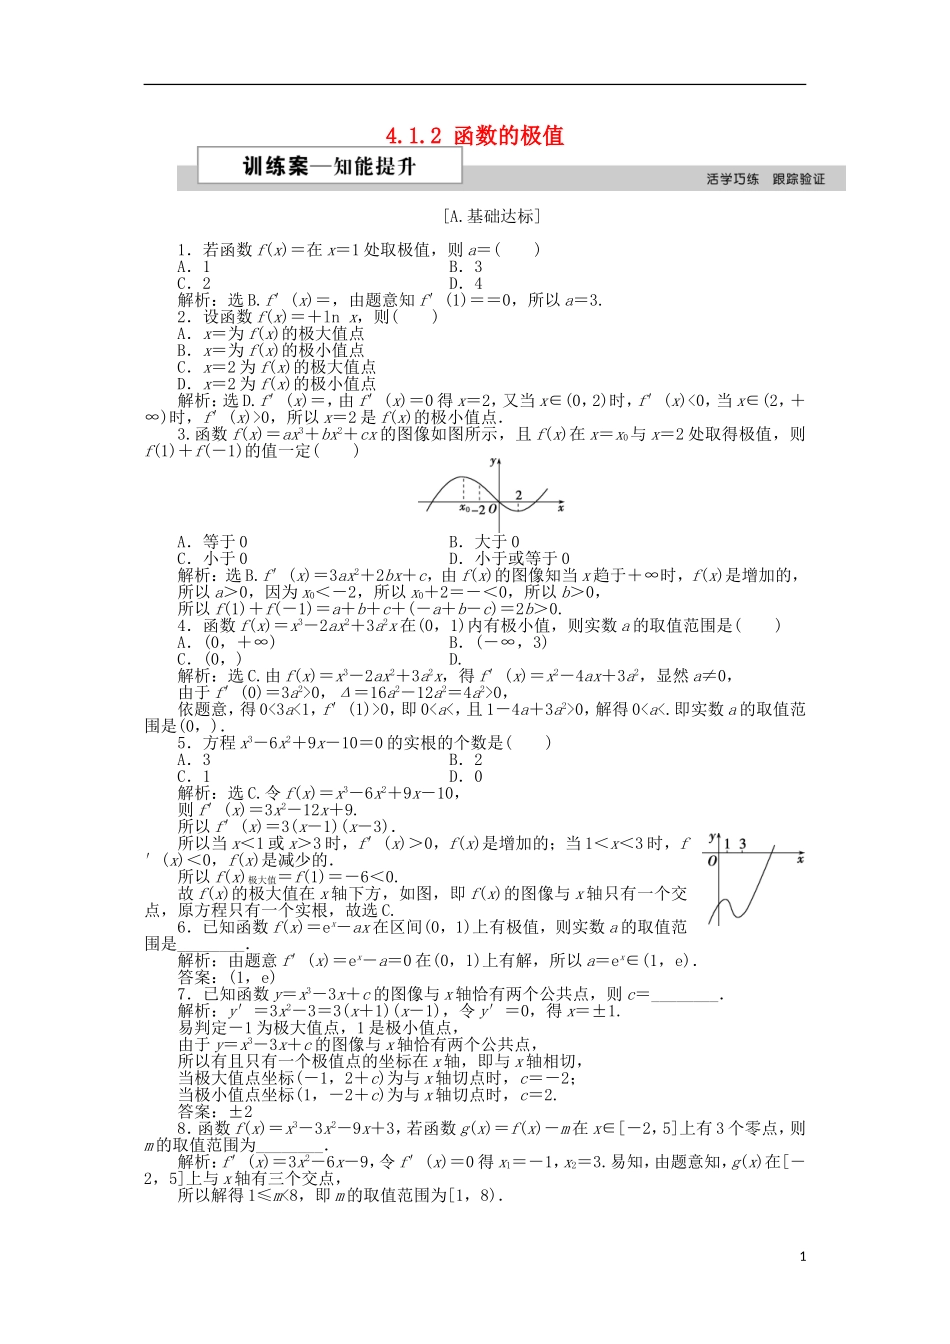 4.1.2 函数的极值
训练案—知能提升 活学巧练 跟踪验证
[A.基础达标]
1．若函数 f(x)＝在 x＝1 处取极值，则 a＝(　　)
A．1 B．3
C．2 D．4
解析：选 B.f′(x)＝，由题意知 f′(1)＝＝0，所以 a＝3.
2．设函数 f(x)＝＋ln x，则(　　)
A．x＝为 f(x)的极大值点
B．x＝为 f(x)的极小值点
C．x＝2 为 f(x)的极大值点
D．x＝2 为 f(x)的极小值点
解析：选 D.f′(x)＝，由 f′(x)＝0 得 x＝2，又当 x∈(0，2)时，f′(x)<0，当 x∈(2，＋
∞)时，f′(x)>0，所以 x＝2 是 f(x)的极小值点．
3.函数 f(x)＝ax³＋bx²＋cx 的图像如图所示，且 f(x)在 x＝x₀与 x＝2 处取得极值，则
f(1)＋f(－1)的值一定(　　)
y
x₀ －2 O 2 x
A．等于 0 B．大于 0
C．小于 0 D．小于或等于 0
解析：选 B.f′(x)＝3ax²＋2bx＋c，由 f(x)的图像知当 x 趋于＋∞时，f(x)是增加的，
所以 a＞0，因为 x₀＜－2，所以 x₀＋2＝－＜0，所以 b＞0，
所以 f(1)＋f(－1)＝a＋b＋c＋(－a＋b－c)＝2b＞0.
4．函数 f(x)＝x³－2ax²＋3a²x 在(0，1)内有极小值，则实数 a 的取值范围是(　　)
A．(0，＋∞) B．(－∞，3)
C．(0，) D.
解析：选 C.由 f(x)＝x³－2ax²＋3a²x，得 f′(x)＝x²－4ax＋3a²，显然 a≠0，
由于 f′(0)＝3a²>0，Δ＝16a²－12a²＝4a²>0，
依题意，得 0<3a<1，f′(1)>0，即 0<a<，且 1－4a＋3a²>0，解得 0<a<.即实数 a 的取值范
围是(0，)．
5．方程 x³－6x²＋9x－10＝0 的实根的个数是(　　)
A．3 B．2
C．1 D．0
解析：选 C.令 f(x)＝x³－6x²＋9x－10，
则 f′(x)＝3x²－12x＋9.
所以 f′(x)＝3(x－1)(x－3)．
所以当 x＜1 或 x＞3 时，f′(x)＞0，f(x)是增加的；当 1＜x＜3 时，f
′(x)＜0，f(x)是减少的．
所以 f(x)极大值＝f(1)＝－6＜0.
故 f(x)的极大值在 x 轴下方，如图，即 f(x)的图像与 x 轴只有一个交
点，原方程只有一个实根，故选 C.
y
O 1 3 x
6．已知函数 f(x)＝eˣ－ax 在区间(0，1)上有极值，则实数 a 的取值范
围是________．
解析：由题意 f′(x)＝eˣ－a＝0 在(0，1)上有解，所以 a＝eˣ∈(1，e)．
答案：(1，e)
7．已知函数 y＝x³－3x＋c 的图像与 x 轴恰有两个公共点，则 c＝________．
解析：y′＝3x²－3＝3(x＋1)(x－1)，令 y′＝0，得 x＝±1.
易判定－1 为极大值点，1 是极小值点，
由于 y＝x³－3x＋c 的图像与 x 轴恰有两个公共点，
所以有且只有一个极值点的坐标在 x 轴，即与 x 轴相切，
当极大值点坐标(－1，2＋c)为与 x 轴切点时，c＝－2；
当极小值点坐标(1，－2＋c)为与 x 轴切点时，c＝2.
答案：±2
8．函数 f(x)＝x³－3x²－9x＋3，若函数 g(x)＝f(x)－m 在 x∈[－2，5]上有 3 个零点，则
m 的取值范围为________．
解析：f′(x)＝3x²－6x－9，令 f′(x)＝0 得 x₁＝－1，x₂＝3.易知，由题意知，g(x)在[－
2，5]上与 x 轴有三个交点，
所以解得 1≤m<8，即 m 的取值范围为[1，8)．
1